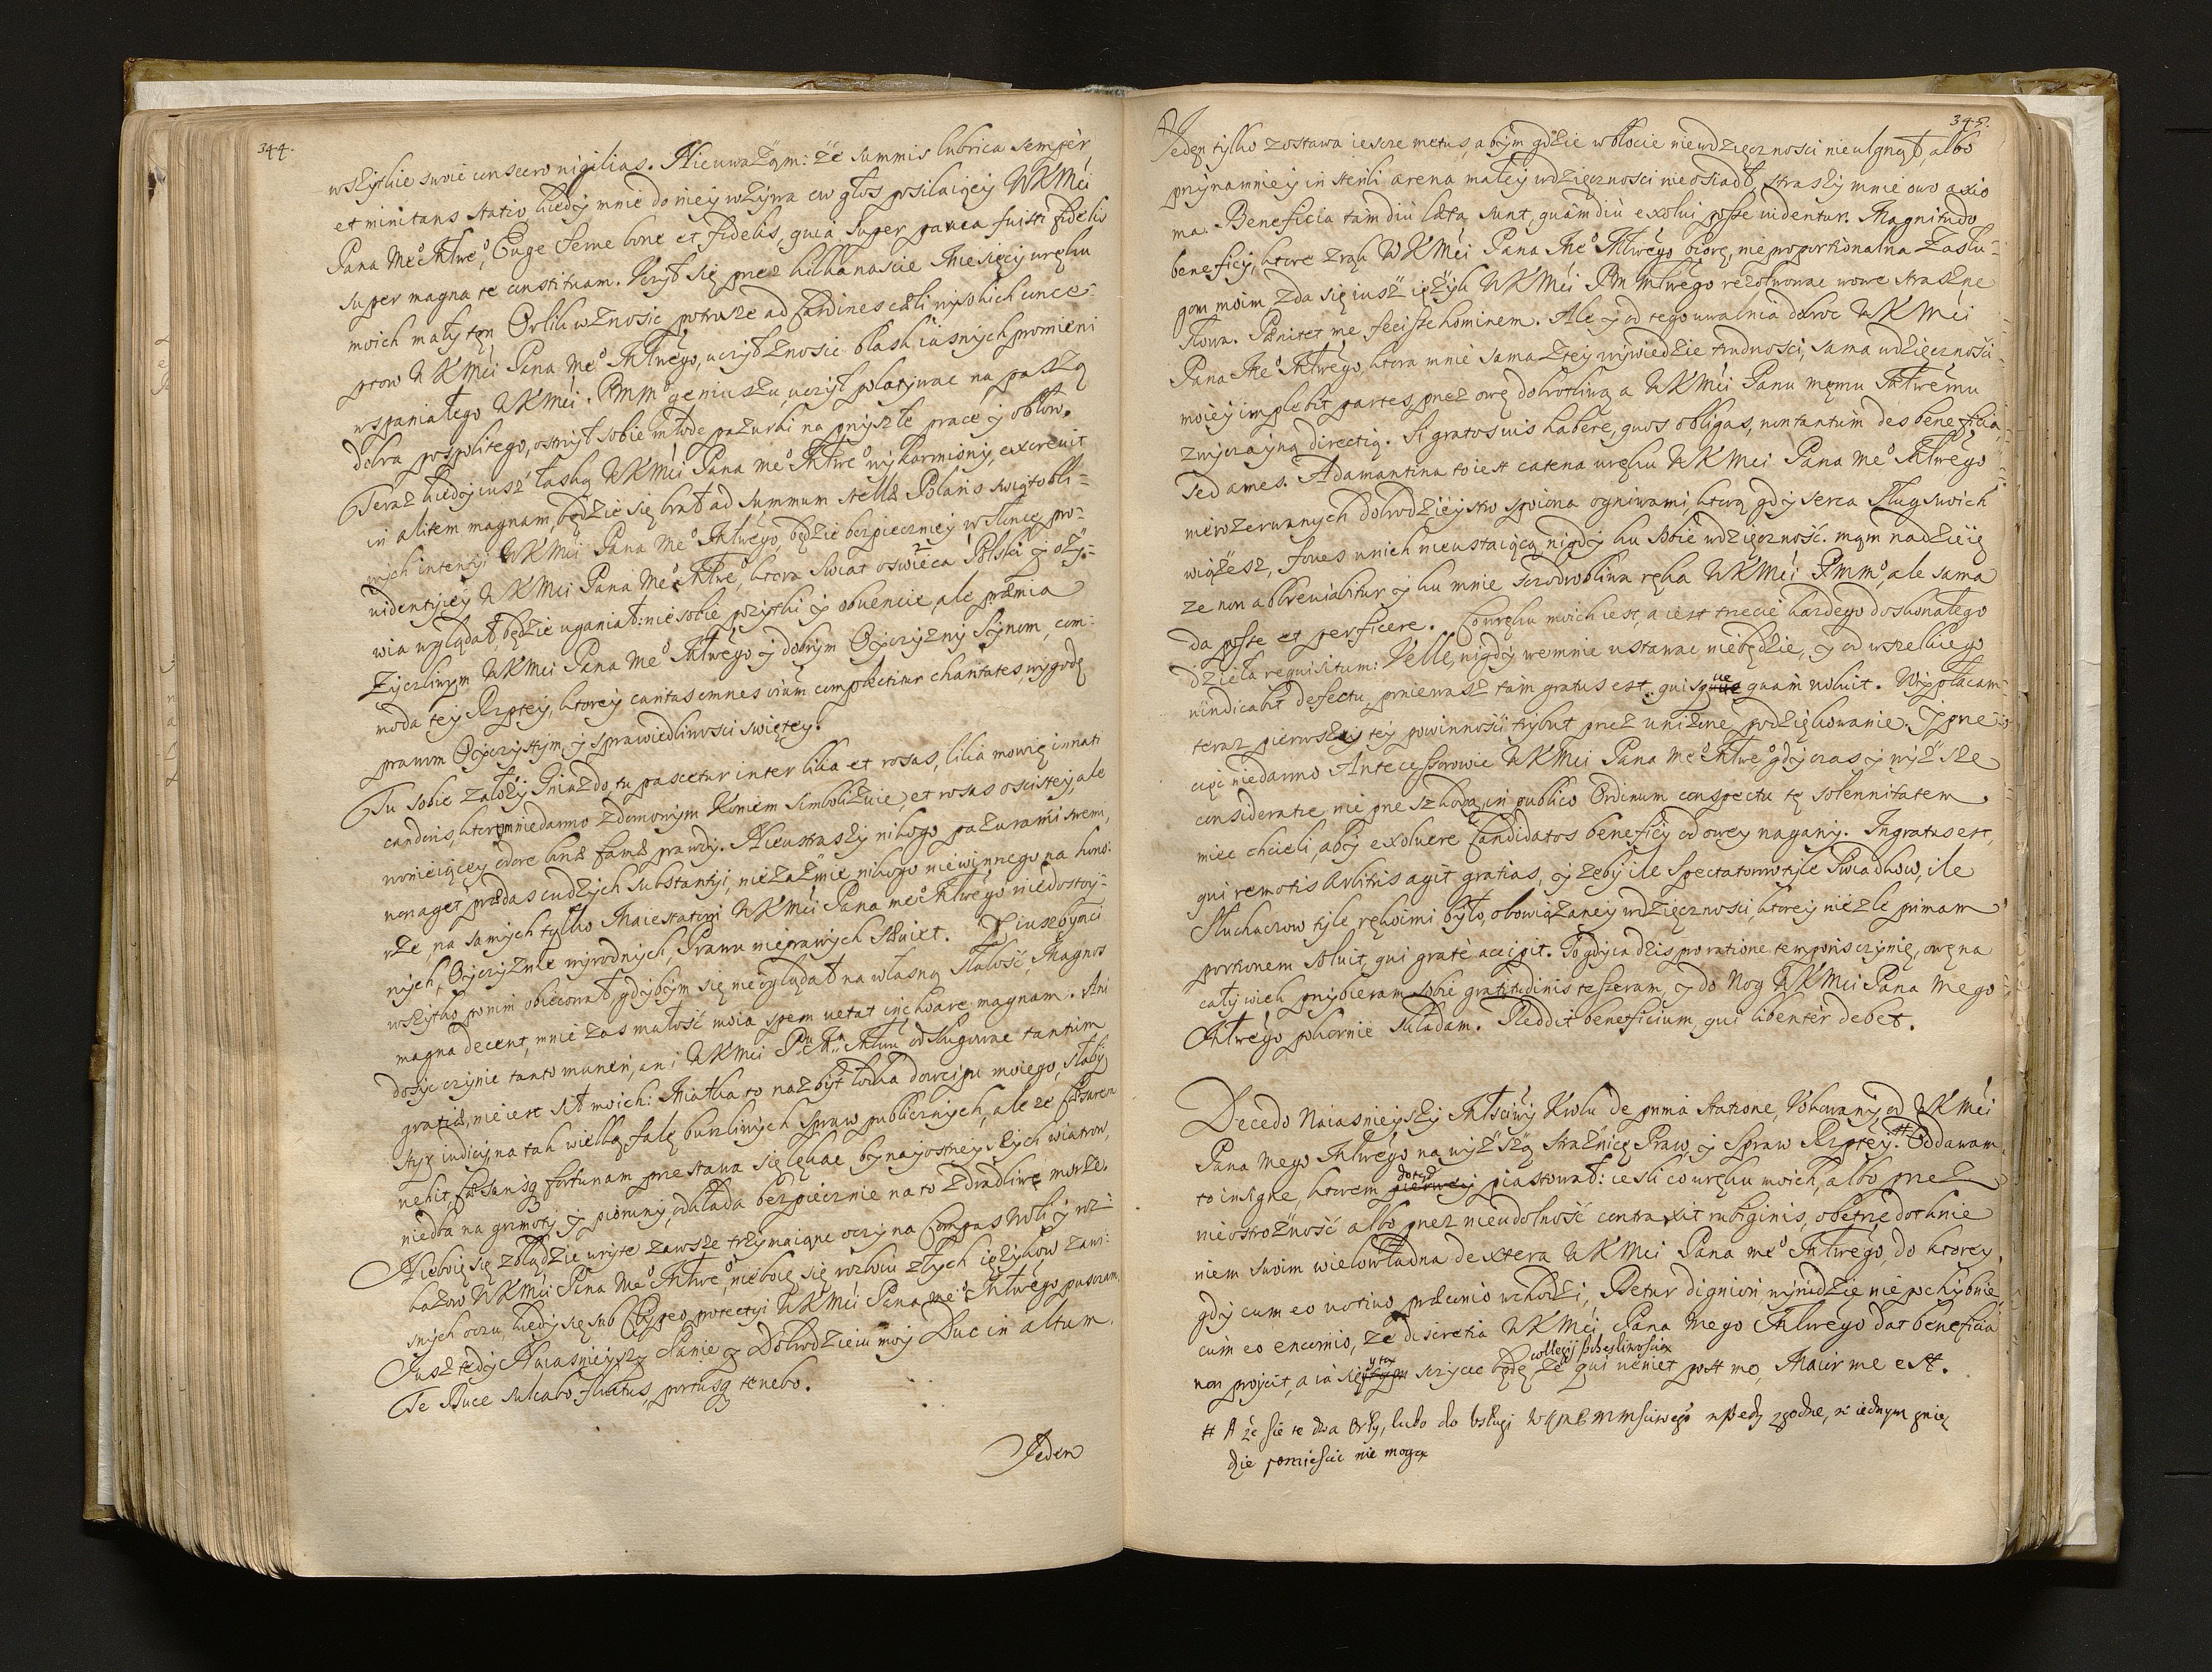 344.
wszytkie swoie consecro vigilias. Nieuważam: że summis lubrica semper
et minitans statio kiedy mnie do niey wzywa ow głos posilaiący WKMći
Pana Meo Młwo, Euge serve bone et fidelis, quia super pauca fuisti fidelis
super magna te constituam. Uczył się przez kilkanascie Miesięcy wręku
moich mały ten Orlik wznosic potrosze ad cardines cæli wysokich conce-
ptow WKMći Pana Meo Młwego, uczył znosic blask iasnych promieni
wspaniałego WKMći PMMo geniuszu, uczył polatywac na paszą
dobra pospolitego, ostrzył sobie młode pazurki na przyszłe prace y obłow.
Teraz kiedy iusz łaską WKMći Pana Meo Młweo wykarmiony, excrevit
in alitem magnam, będzie się brał ad summum stellæ Polaris swiątobli-
wych intentyi WKMći Pana Meo Młwego, będzie bezpieczniey w słonce pro-
videntyiey WKMći Pana Meo Młweo, ktora swiat oswieca Polski y oży-
wia wglądał, będzie uganiał: nie sobie pozytki y obvencie, ale præmia
Życzliwym WKMći Pana Meo Młwego y dobrym Oyczyzny Synom, com-
moda tey Rzptey, ktorey caritas omnes omnium complectitur charitates, wygodę
prawom Oyczystym y sprawiedliwosci swiętey.
Tu sobie założy Gniazdo, tu pascetur inter lilia et rosas, lilia mowię innati
candoris, ktorym niedarmo zdomowym Koniem simbolizuie, et rosas oscistey, ale
woniciącey odore bonæ famæ prawdy. Nieustraszy nikogo pazurami swemi,
non aget prædas cudzych substantyi, niezażnie nikogo niewinnego na hono-
rze, na samych tylko Maiestatowi WKMći Pana meo Młwego niedostoy-
nych, Oyczyznie wyrodnych, Prawu nieprawych sæviet. I iuszbym ci
wszytko po nim obiecował, gdybym się nieoglądał na własną słabość, Magnos
magna decent, mnie zas małość moia spem vetat inchoare magnam. Ani
dosyc czynie tanto muneri, ani WKMći PuMu Młwu odsługowac tantum
gratiæ, nie iest sił moich: Miałka to nazbyt łodka dowcipu moiego, słaby
styr iudicij na tak wielką falę burzliwych spraw publicznych, ale że Cæsarem
vehit, Cæsarisq fortunam przestawa się lękac bynayostrzeyszych wiatrow,
niedba na grzmoty y pioruny, odkłada bezpiecznie na to zdradliwe morze.
Nieboię się zbłądzic wryte zawsze trzymaiąc oczy na Compas Woli y roz-
kazow WKMći Pana Meo Młweo, nieboię się rozboiu złych ięzykow zawi-
snych oczu, kiedy się sub Clypeo protectyi WKMći Pana meo Młwego puszczam.
Jusz tedy Naiasnieyszy Panie y Dobrodzieiu moy Duc in altum.
Te Duce sulcabo fluctus, portusq tenebo.
Jeden
345.
Jeden tylko zostawa ieszcze metus, abym gdzie wbłocie niewdzięcznosci nieulgnął, albo
przynamniey in sterili arena małey wdzięcznosci nieosiadł, straszy mnie owo axio
ma. Beneficia tamdiù læta sunt, quàmdiù exolvi posse videntur. Magnitudo
beneficij, ktore zrąk WKMći Pana Meo Młwego biorę, nieproportionalna Zasłu-
gom moim zda się iusz ięzyk WKMći PM Młwego rezolwowac wowe straszne
słowa. Pænitet me fecisse hominem. Ale y od tego uwalnia dobroc WKMći
Pana Meo Młwego, ktora mnie sama ztey wywiedzie trudnosci, sama wdzięcznosci
moiey implebit partes, przez owę dobrotliwą a WKMći Panu męmu Młwemu
zwyczayną directią. Si gratos vis habere, quos obligas, non tantùm des beneficia,
sed ames. Adamantina to iest catena wręku WKMći Pana Meo Młwego
nierozerwanych dobrodzieystw spoiona ogniwami, ktorą gdy serca Sług swoich
wiążesz, foves wnich nieustaiącą nigdy ku sobie wdzięczność. mam nadzieię
ze non abbreviabitur y ku mnie szczodrobliwa ręka WKMći PMMo, ale sama
da posse et perficere. Co wręku moich iest, a iest trzecie każdego doskonałego
dzieła requisitum: Velle, nigdy wemnie ustawac niebędzie, y od wszelkiego
vindicabit defectu, ponieważ tàm gratus est quisque quàm voluit. Wypłacam
teraz pierwszy tey powinnosci trybut przez uniżone podziękowanie. Y prze-
cięc niedarmo Antecessorowie WKMći Pana Meo Młweo, gdy czas y wyższe
consideratie nie przeszkodzą, in publico Ordinum conspectu tę solennitatem
miec chcieli, aby exolvere Candidatos beneficij od owey nagany. Ingratus est,
qui remotis Arbitris agit gratias, y zeby ile spectatorow tyle Swiadkow, ile
Słuchaczow tyle rękoimi było, obowiązaney wdzięcznosci, ktorey niezle primam
portionem solvit, qui gratè accipit. To gdy ia dzis po ratione temporis czynię, owę na
cały wiek przybieram sobie gratitudinis tesseram, y do Nog WKMći Pana Mego
Młwego pokornie składam. Reddit beneficium, qui libentèr debet.
Decedo Naiasnieyszy Młsciwy Krolu de prima statione, Wokowany od WKMći
Pana Mego Młwego na wyższą strażnicę Praw y Spraw Rzptey. # Oddawam
to insigne, ktorem dotąd pierwey piastował: iesli co wręku moich, albo przez
nieostrożność albo przez nieudolność contraxit rubiginis, obetrze dotknie
niem swoim wielowładna dextera WKMći Pana meo Młwego, do ktorey
gdy cum eo votivo præconio wchodzi, Detur digniori, wynidzie niepochybnie
cùm eo encomio, że discretia WKMći Pana Mego Młwego dat beneficia
non projicit, a ia się y tą collegij szczęsliwoscią szczycic będę że qui veniet post me, Maior me est.
# A że się te dwa Orły, lubo do usługi WKMPMMsciwego wszędy zgodne, w iednym gnieź
dzie pomiescic nie mogą